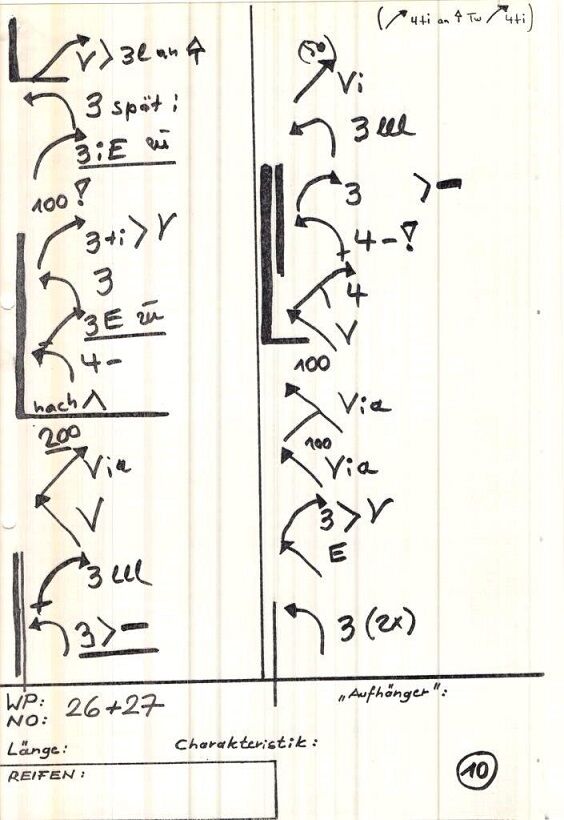 ( 4+i an Tw 4+i )
V > 3l an
3 spät i
3iE zu
100 !
3+i > V
3
3E zu
4-
nach
200
Via
V
3 lll
3 > -
(50)
Vi
3 lll
3 > -
4-!
4
V
100
Via
100
Via
3 > V
E
3 (2x)
WP:
NO: 26+27
„Aufhänger“:
Länge:
Charakteristik:
REIFEN:
10